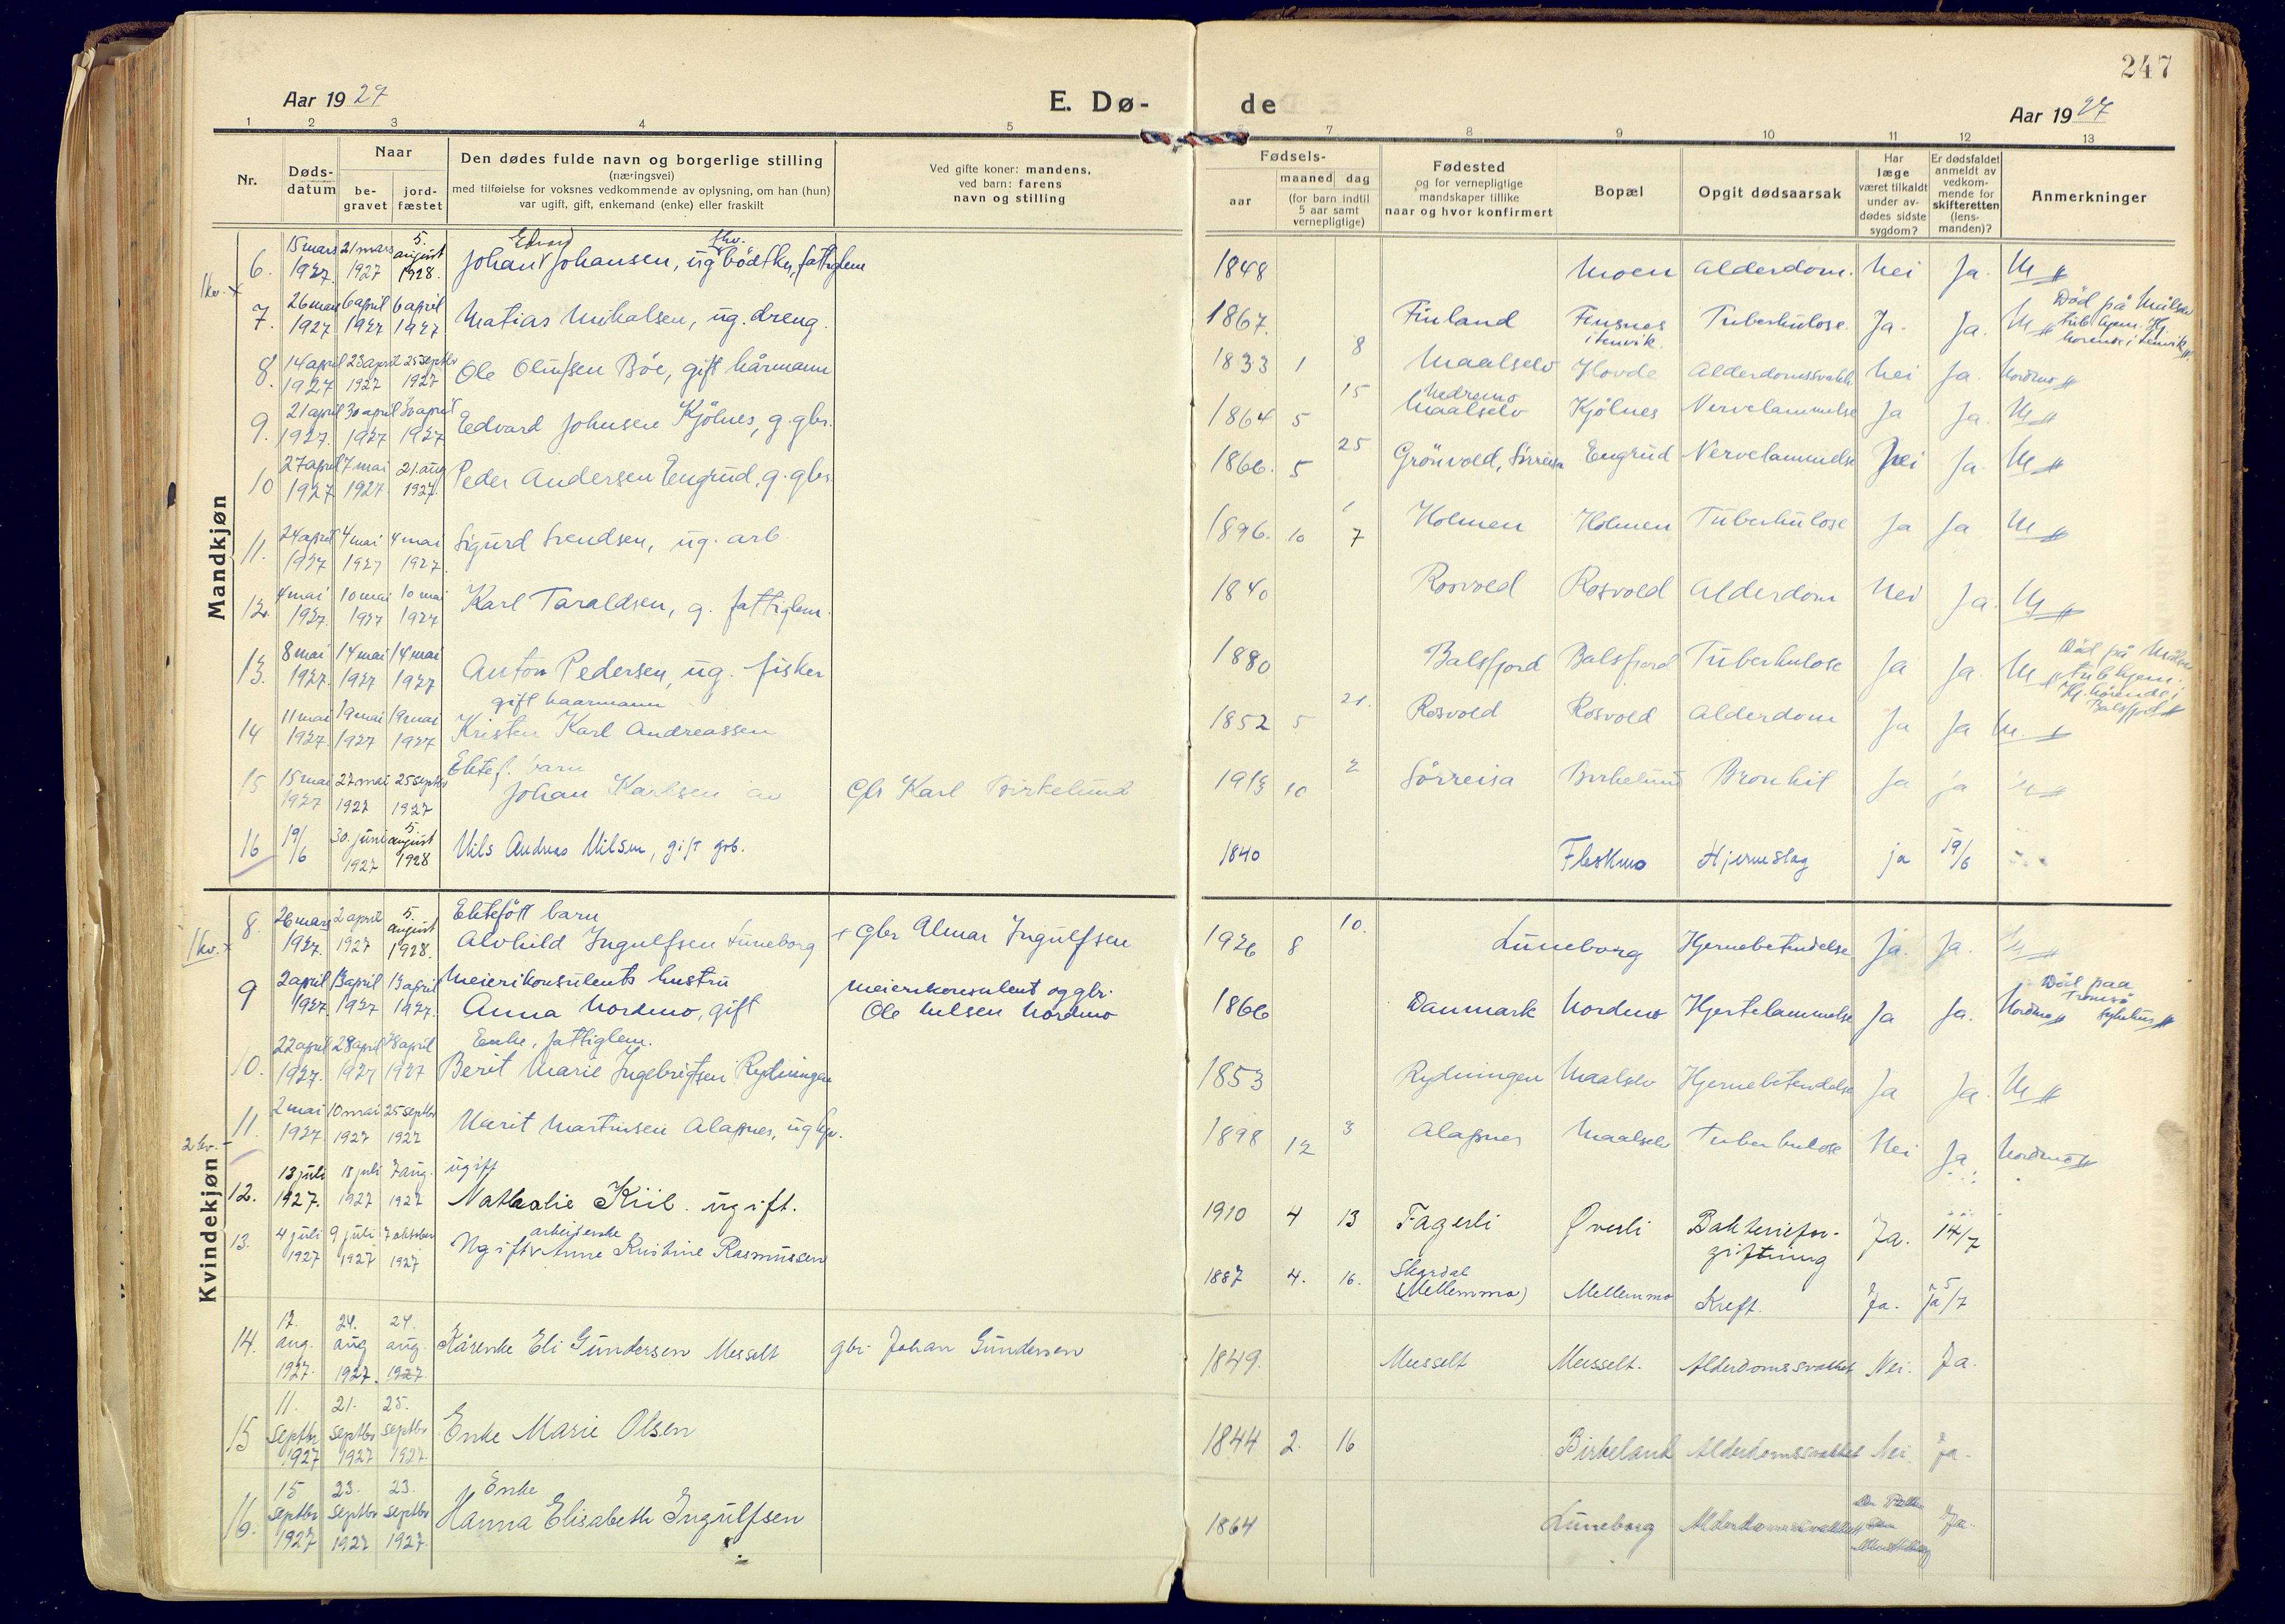 247
Aar 1927
E. Dø-
de
Aar 1927
1 2 3 4 5 7 8 9 10 11 12 13
Nr.
Døds-
datum
Naar
be-
gravet
jord-
fæstet
Den dødes fulde navn og borgerlige stilling
(næringsvei)
med tilføielse for voksnes vedkommende av oplysning, om han (hun)
var ugift, gift, enkemand (enke) eller fraskilt
Ved gifte koner: mandens,
ved barn: farens
navn og stilling
Fødsels-
aar
maaned dag
(for barn indtil
5 aar samt
vernepligtige)
Fødested
og for vernepligtige
mandskaper tillike
naar og hvor konfirmert
Bopæl
Opgit dødsaarsak
Har
læge
været tilkaldt
under av-
dødes sidste
sygdom?
Er dødsfaldet
anmeldt av
vedkom-
mende for
skifteretten
(lens-
manden)?
Anmerkninger
Mandkjøn
6. 15 mars 1927. 21 mars 1927 5. august 1928. Johan Edvard Johansen, ug. fhv. bödtker, fattiglem 1848 Moen Alderdom. Nei Ja. M
1 kv. x
7. 26 mars 1927 6 april 1927 6 april 1927 Matias Mikalsen, ug. dreng. 1867. Finland Finsnes i Lenvik. Tuberkulose. Ja. Ja. M Död på Målselv tub.hjem. Hj. hörende i Lenvik
8. 14 april 1927 23 april 1927 25 septbr 1927 Ole Olufsen Böe, gift kårmann 1833 1 8 Maalselv Hovde Alderdomssvakh. Nei Ja. Nordmo
9. 21 april 1927. 30 april 1927 30 april 1927 Edvard Johnsen Kjölnes, g. gbr. 1864 5 15 Nedremo Maalselv Kjölnes Nervelammelse Ja Ja. M
10 27 april 1927 7 mai 1927. 21. aug 1927. Peder Andersen Engrud, g. gbr. 1866. 5 25 Grönvold, Sörreisa Engrud Nervelammelse Nei Ja. M
11. 24 april 1927 4 mai 1927 4 mai 1927. Sigurd Svendsen, ug. arb. 1896. 10 7 Holmen Holmen Tuberkulose Ja Ja M
12. 4 mai 1927. 10 mai 1927 10 mai 1927 Karl Taraldsen, g. fattiglem. 1840 Rosvold Rosvold Alderdom Nei Ja. M
13. 8 mai 1927. 14 mai 1927 14 mai 1927 Anton Pedersen, ug. fisker 1880 Balsfjord Balsfjord Tuberkulose Ja Ja. M Död på Målselv tub.hjem. Hj. hörende i Balsfjord
14 11 mai 1927. 19 mai 1927 19 mai 1927 gift kaarmann Kristen Karl Andreassen 1852 5 21. Rosvold Rosvold Alderdom Ja Ja M.
15 15 mai 1927 27 mai 1927 25 septbr 1927 Ektef. barn Johan Karlsen av Gbr Karl Birkelund 1913 10 2 Sörreisa Birkelund Bronkit Ja ja M
16 19/6 30. juni 1927 5. august 1928 Nils Andreas Nilsen, gift grb. 1840 Fleskmo Hjerneslag ja 19/6
Kvindekjøn
1 kv. x
8. 26 mars 1927. 2 april 1927 5. august 1928. Ektefött barn Alvhild Ingulfsen Luneborg + Gbr Almar Ingulfsen 1926 8 10. Luneborg Hjernebetendelse Ja. Ja. M
9 2 april 1927. 13 april 1927 13 april 1927. Meierikonsulents hustru Anna Nordmo, gift Meierikonsulent og gbr. Ole Nilsen Nordmo 1866 Danmark Nordmo Hjertelammelse Ja Ja. Nordmo Död paa Tromsö Sykehus
10. 22 april 1927. 28 april 1927 28 april 1927 Enke, fattiglem. Berit Marie Ingebrigtsen Rydningen 1853 Rydningen Maalselv Hjernebetendelse Ja Ja. M
2 kv. -
11. 2 mai 1927. 10 mai 1927 25 septbr 1927 Marit Martinsen Alapnes, ug. 1898 12 3 Alapnes Maalselv Tuberkulose Nei Ja Nordmo
12. 13 juli 1927. 18 juli 1927 7 aug. 1927 ugift Nathalie Kiil. ugift. 1910 4 13 Fagerli Øverli Bakteriefor-giftning Ja. 14/7
13. 4 juli 1927 9 juli 1927 7 oktober 1927 Ugift arbeiderske Anne Kristine Rasmussen 1887 4. 16. Skardal (Mellemmo) Mellemmo Kreft. Ja. Ja 5/7
14. 17. aug. 1927. 24. aug 1927. 24. aug. 1927. Kårenke Eli Gundersen Messelt gbr. Johan Gundersen 1849. Messelt Messelt. Alderdomssvakhet Nei. Ja.
15 11. septbr 1927 21. septbr 1927 25. septbr 1927. Enke Marie Olsen 1844 2. 16 Birkeland Alderdomssvakhet Nei. Ja.
16. 15 septbr 1927 23. septbr 1927 23. septbr 1927. Enke Hanna Elisabeth Ingulfsen 1864 Luneborg Alderdomssvakhet Ja.